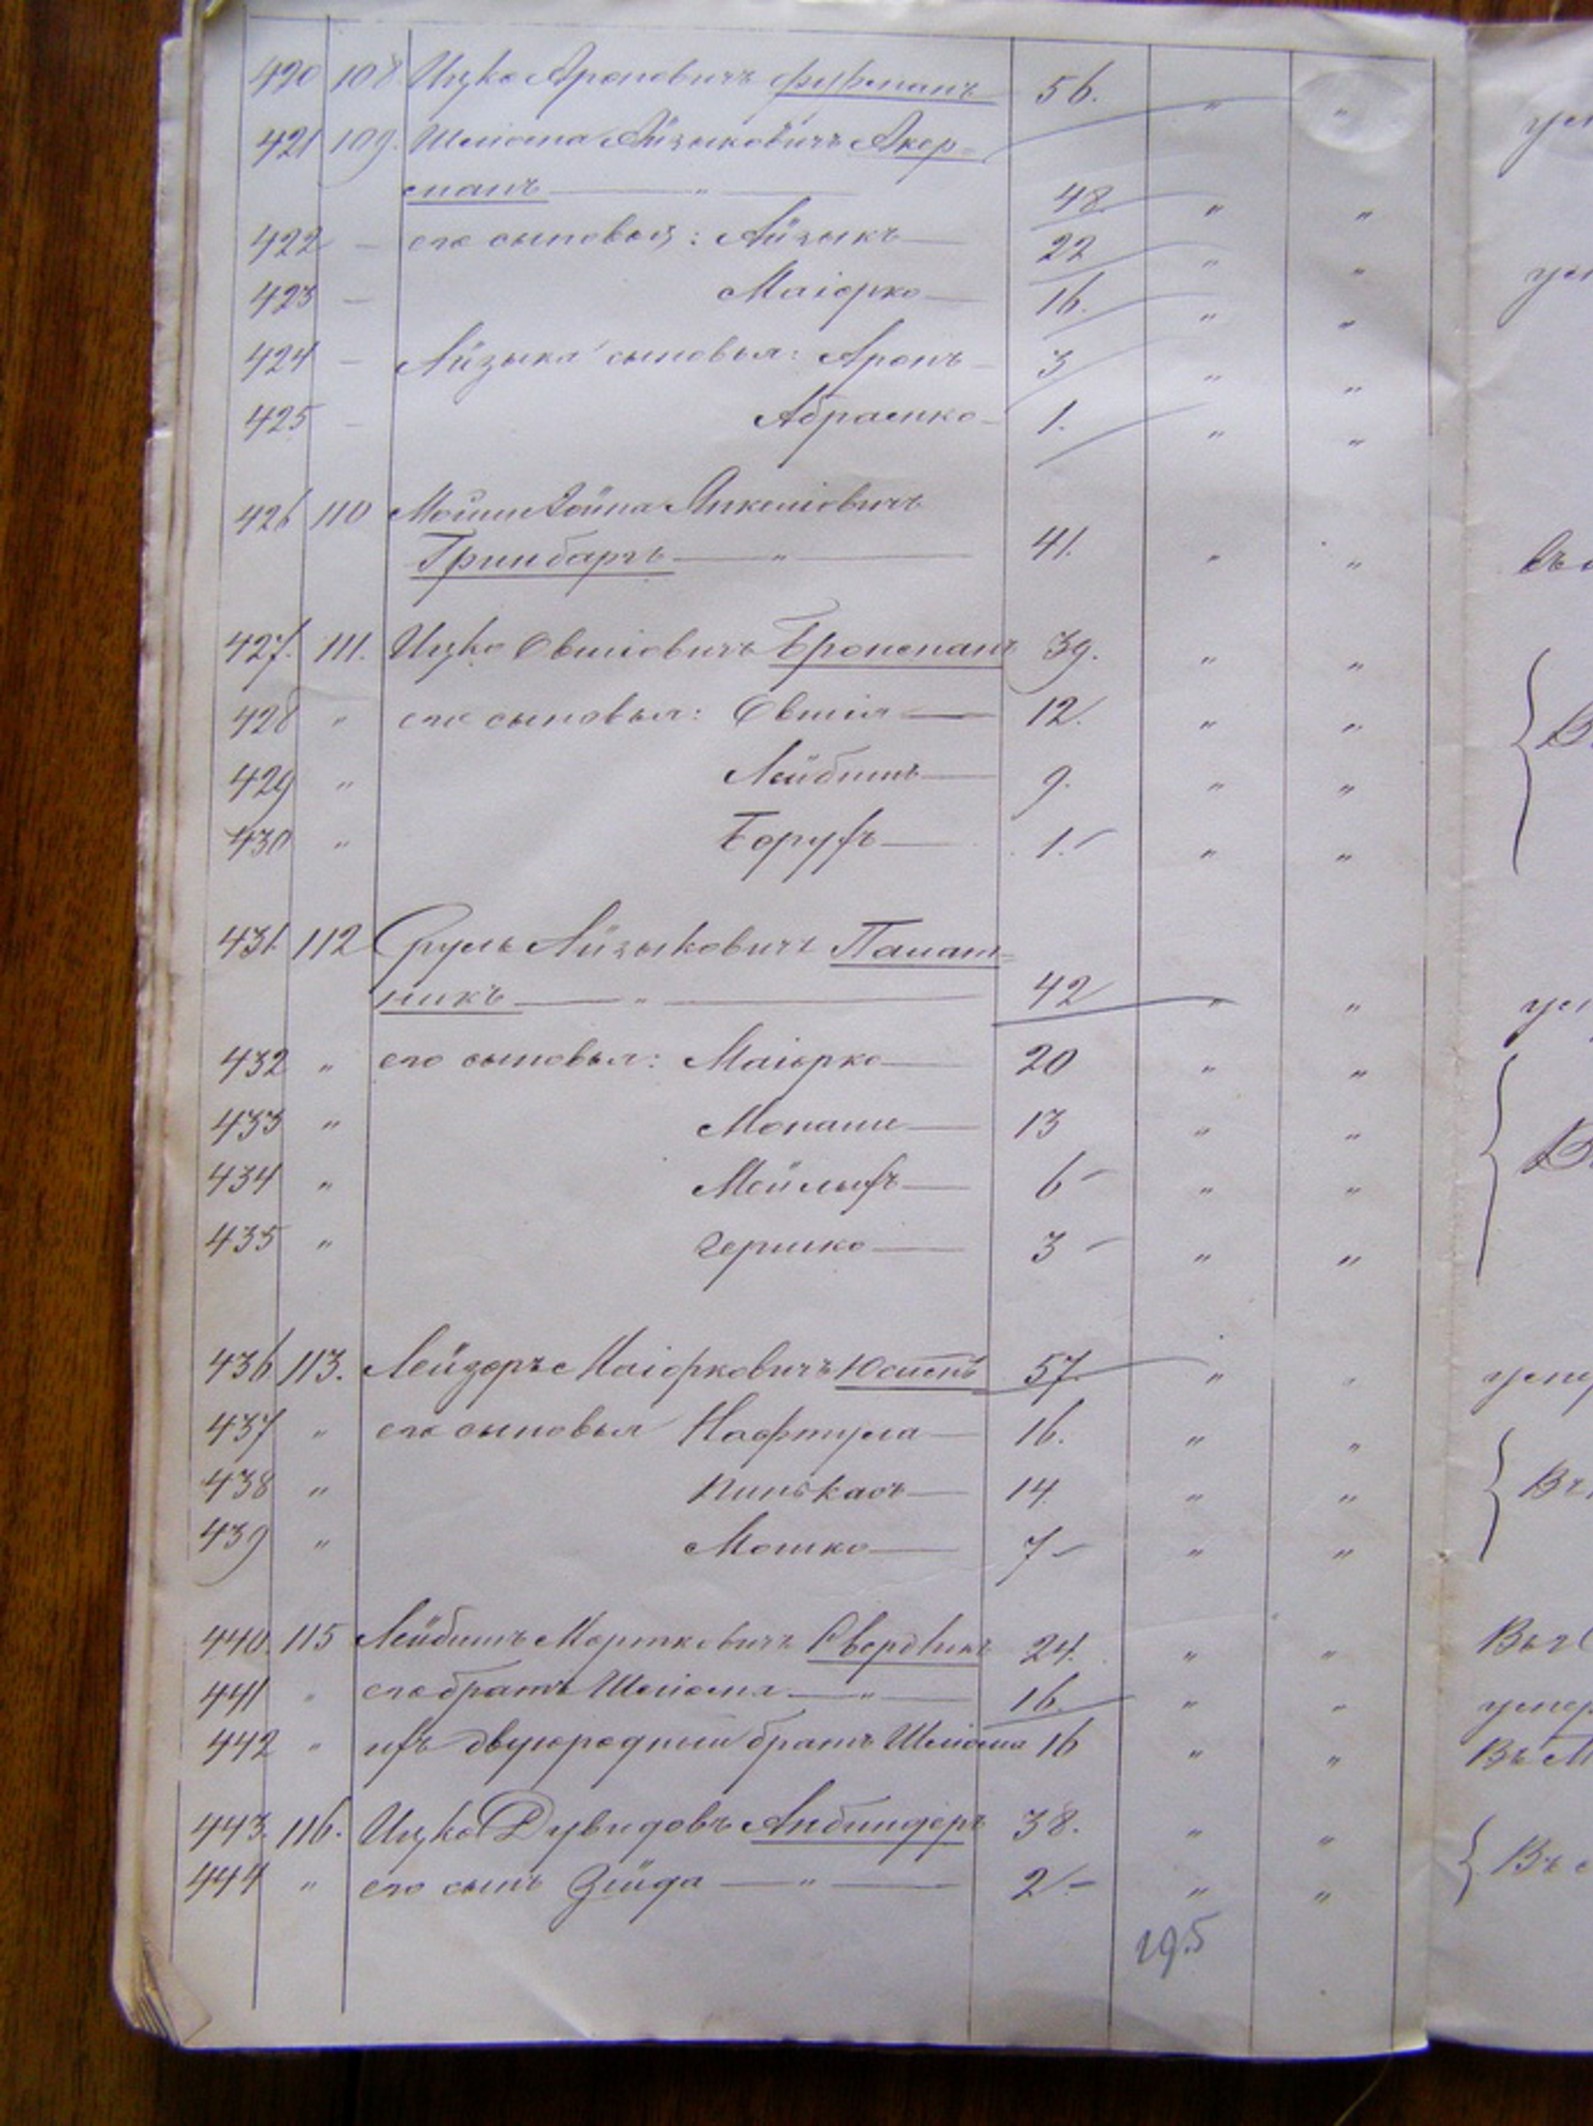 420 108. Ицко Ароновичъ Фуфманъ 56. " "
421 109. Шлиома Айзыковичъ Акер=
манъ — " — 48 " "
422 — его сыновья: Айзыкъ — 22 " "
423 — Маіорко — 16. " "
424 — Айзыка сыновья: Аронъ — 3 " "
425 — Абрамко — 1. " "
426 110 Мошизойна Янкеліовичъ
Гринбаргъ — " — 41. " "
427. 111. Ицко Овшіовичъ Бронсманъ 39. " "
428 " его сыновья: Овшія — 12. " "
429 " Лейбишъ — 9. " "
430 " Боруфъ — 1. — " "
431. 112 Сруль Айзыковичъ Палат=
никъ — " — 42 " "
432 " его сыновья: Маіорко — 20 " "
433 " Монаши — 13 " "
434 " Мейлыфъ — 6 — " "
435 " Гершко — 3 — " "
436 113. Лейзоръ Маіорковичъ 57 " "
437 " его сыновья Нафтула — 16. " "
438 " Пинькасъ — 14 " "
439 " Мошко — 7 — " "
440. 115 Лейбишъ Мортковичъ Свердликъ 24. " "
441 " его братъ Шліома — " — 16. " "
442 " ифъ двуюродный братъ Шліома 16 " "
443. 116. Ицко Дувидовъ Анбиндеръ 38. " "
444 " его сынъ Зейда — " — 2. — " "
195